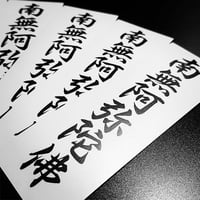 南無阿弥陀佛
南無阿弥陀
南無阿弥
南無阿弥